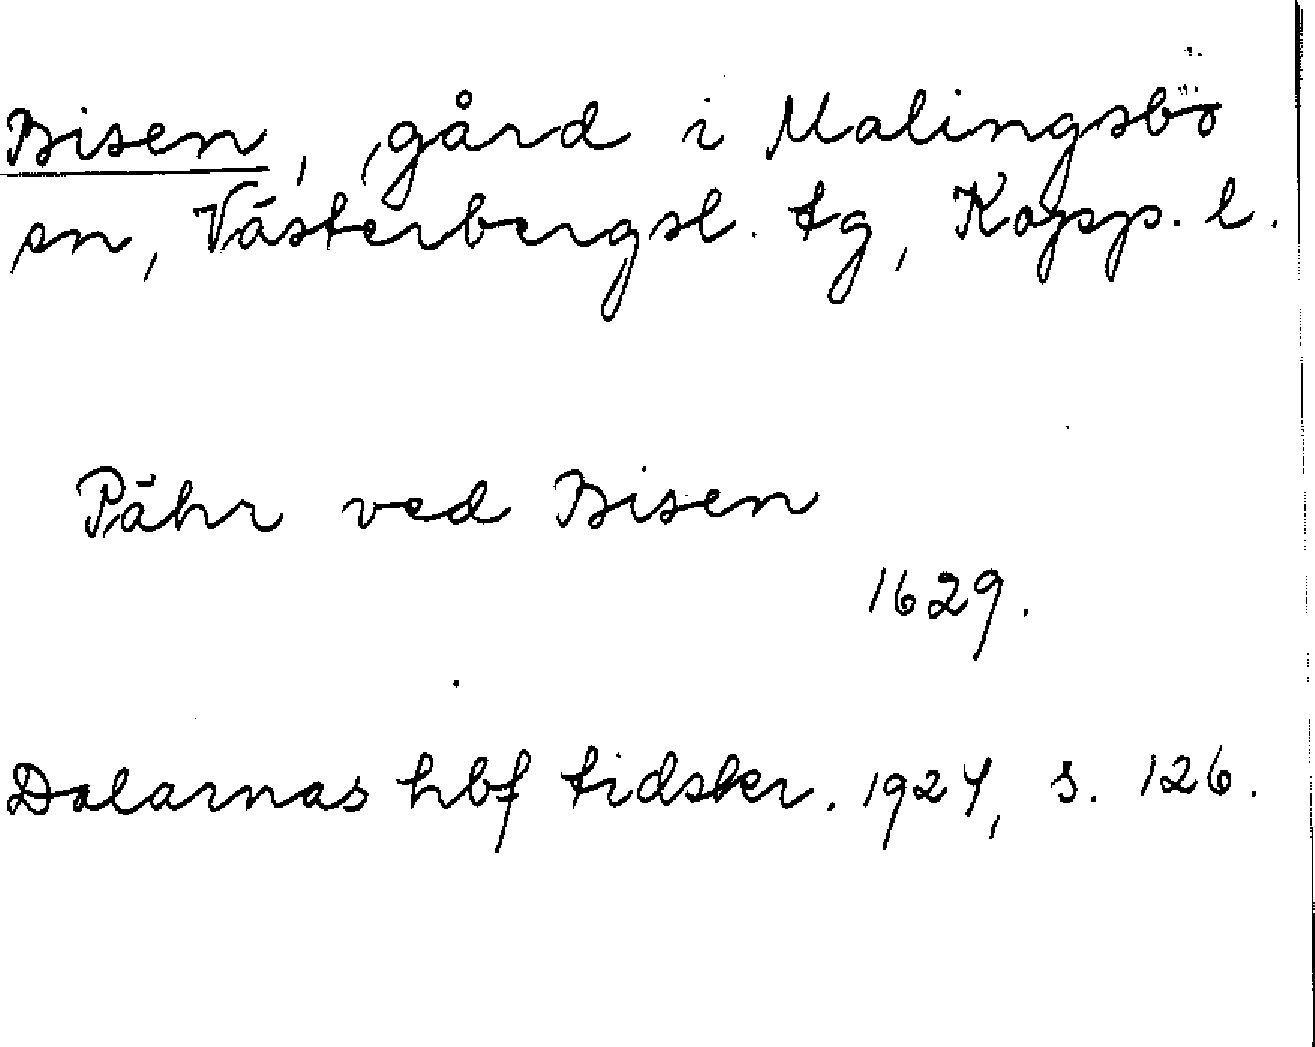 Bisen, gård i Malingsbo
sn, Västerbergsl. tg, Kopp. l.
Pähr ved Bisen
1629.
Dalarnas hbf tidskr. 1924, s. 126.